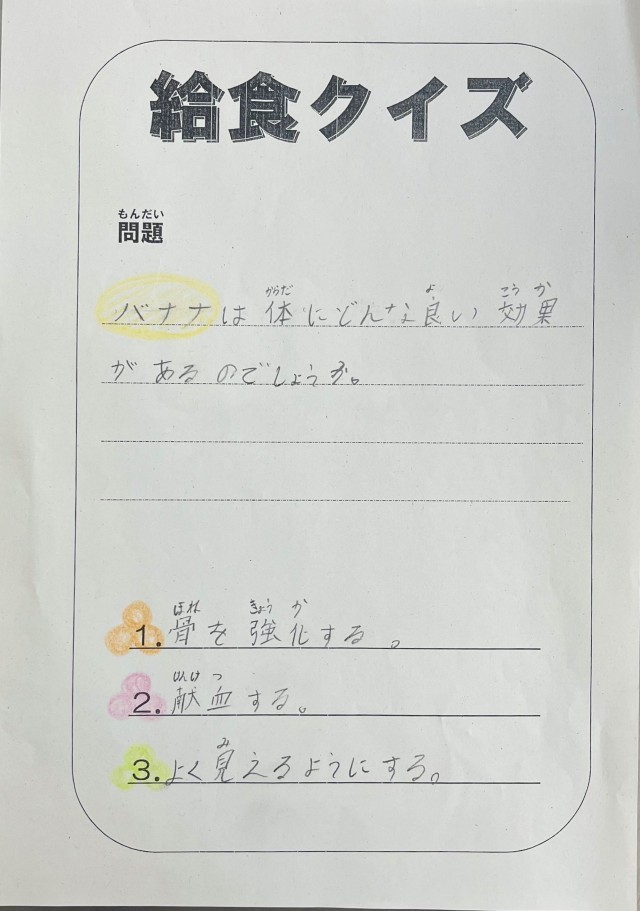 給食クイズ
もんだい
問題
からだ よ こうか
バナナは体にどんな良い効果
があるのでしょうか。
ほね きょうか
1.骨を強化する。
けんけつ
2.献血する。
み
3.よく見えるようにする。